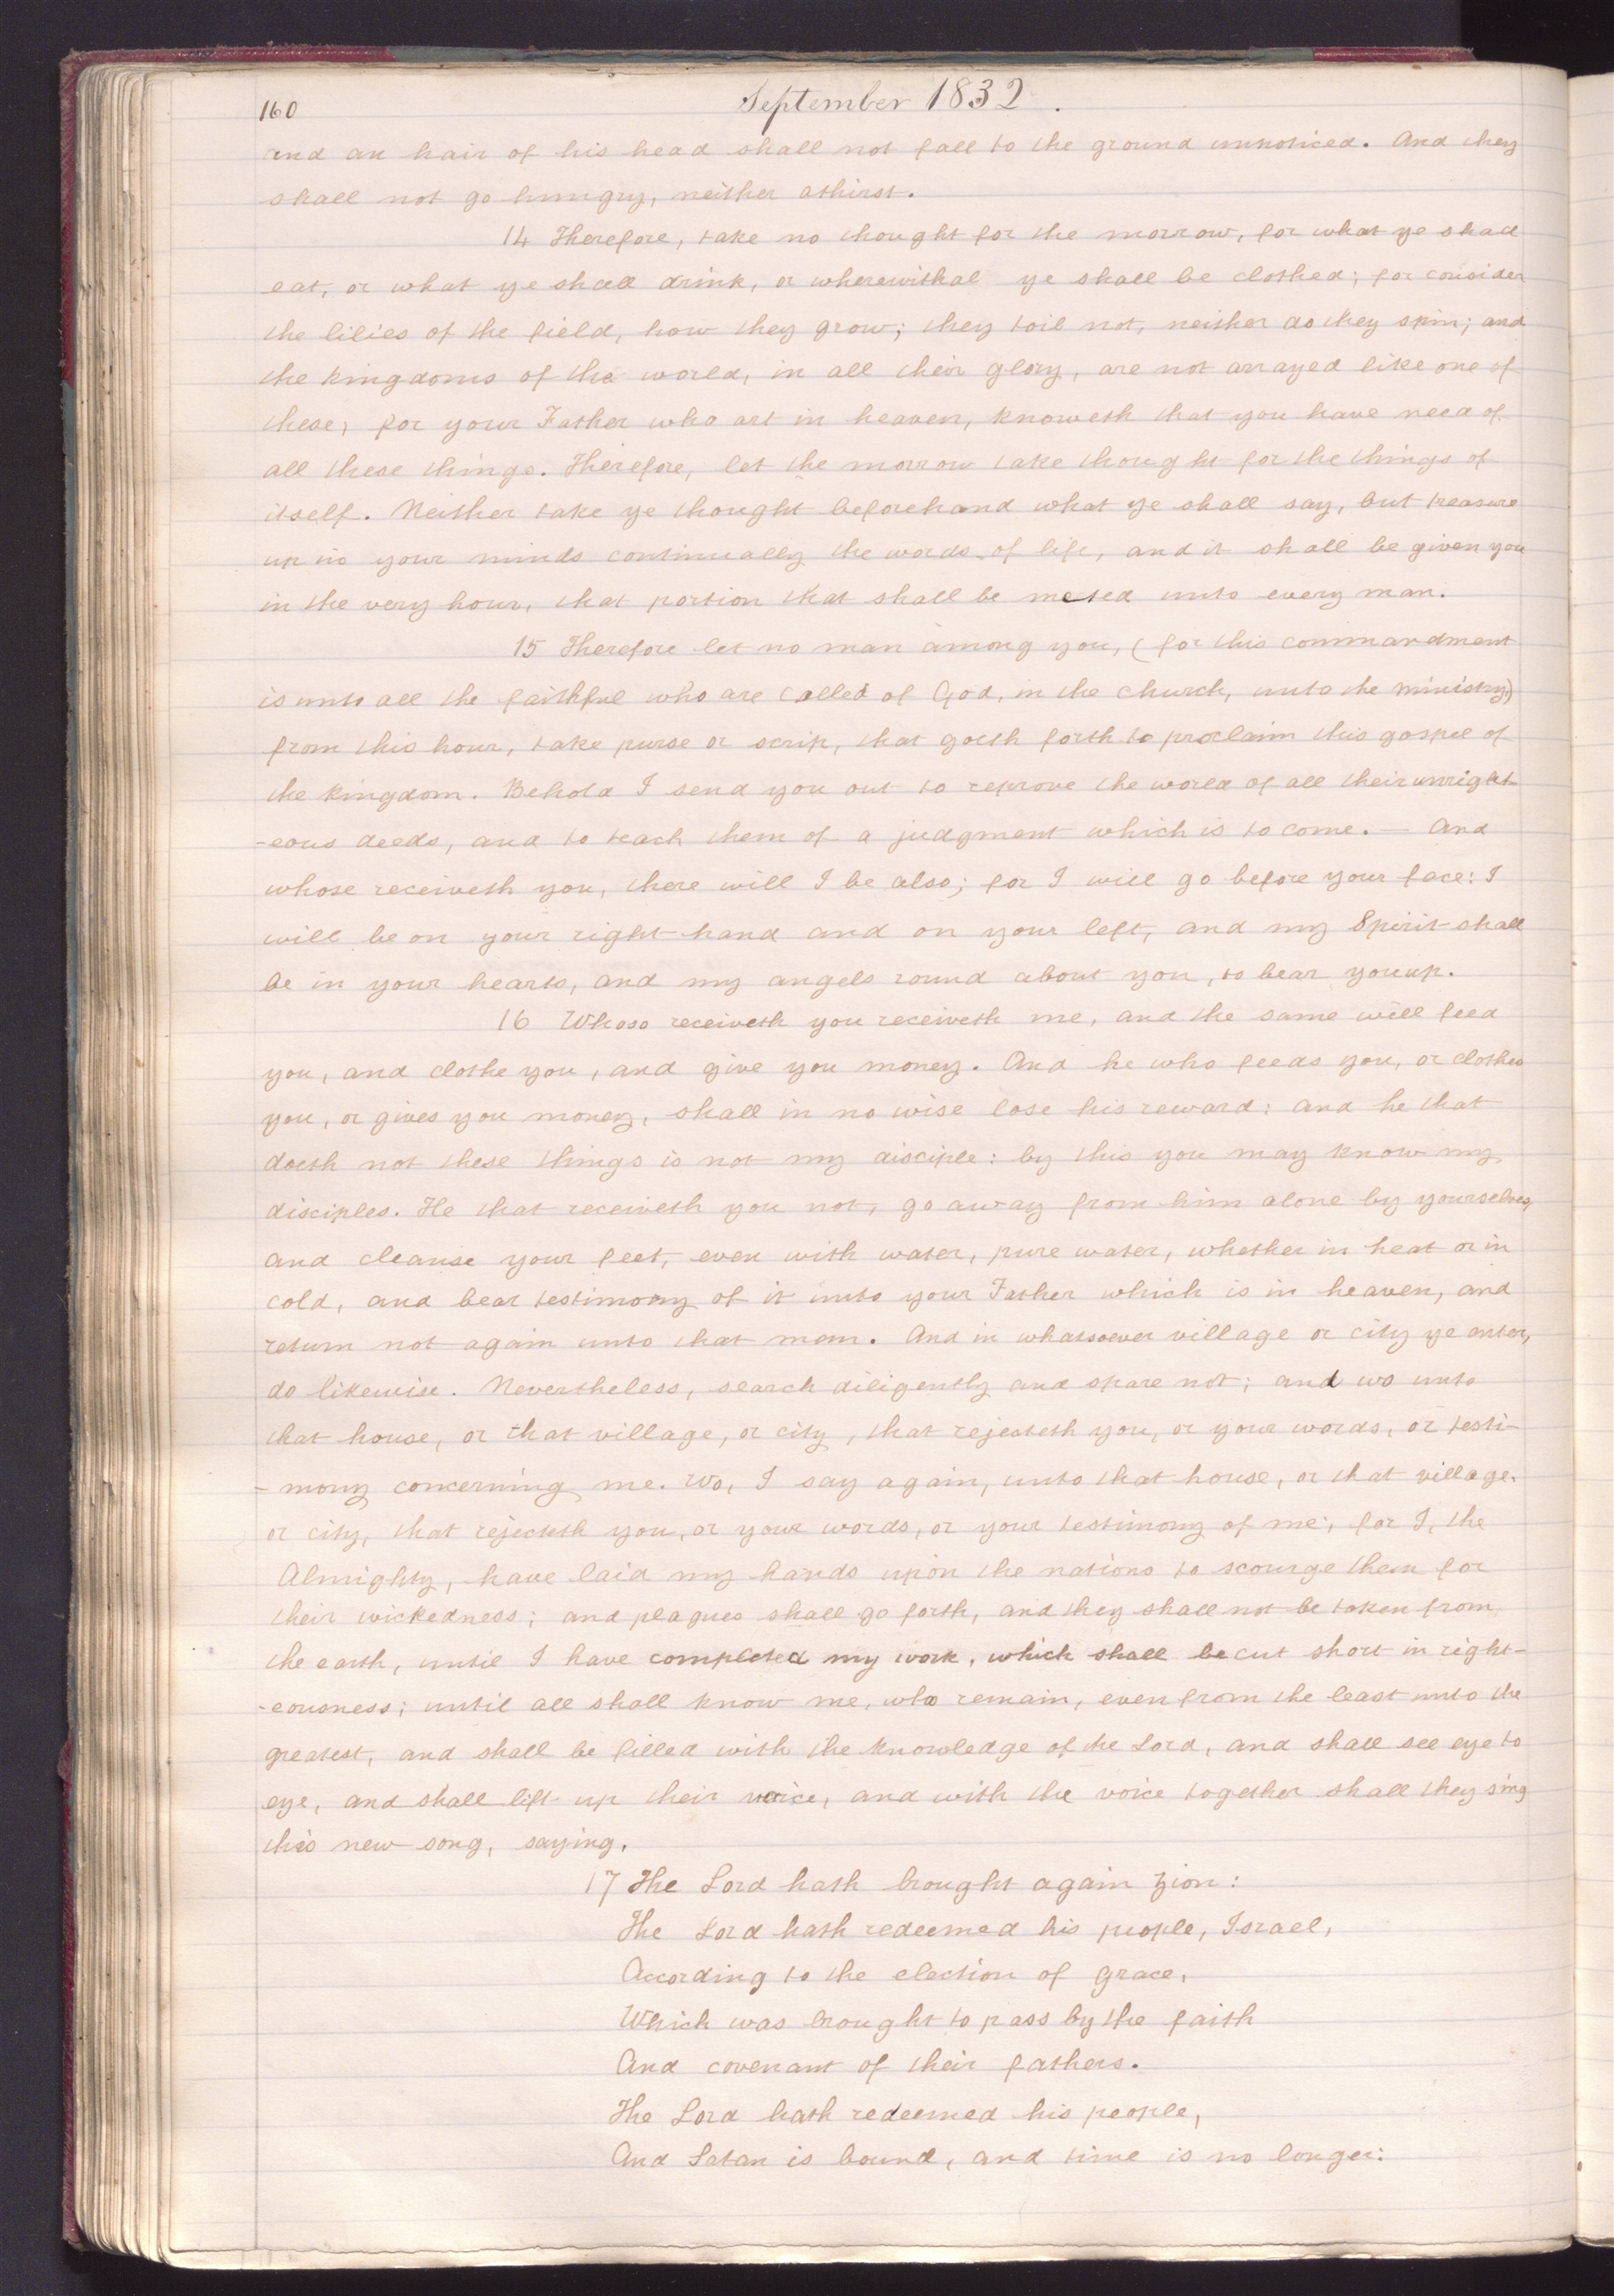 160
September 1832.
and an hair of his head shall not fall to the ground unnoticed. And they
shall not go hungry, neither athirst.
14 Therefore, take no thought for the morrow, for what ye shall
eat, or what ye shall drink, or wherewithal ye shall be clothed; for consider
the lilies of the field, how they grow; they toil not, neither do they spin; and
the kingdoms of the world, in all their glory, are not arrayed like one of
these; for your Father who art in heaven, knoweth that you have need of
all these things. Therefore, let the morrow take thought for the things of
itself. Neither take ye thought beforehand what ye shall say, but treasure
up in your minds continually the words of life, and it shall be given you
in the very hour, that portion that shall be meted unto every man.
15 Therefore let no man among you, (for this commandment
is unto all the faithful who are called of God, in the church, unto the ministry,)
from this hour, take purse or scrip, that goeth forth to proclaim this gospel of
the kingdom. Behold I send you out to reprove the world of all their unright-
-eous deeds, and to teach them of a judgment which is to come. — And
whose receiveth you, there will I be also; for I will go before your face: I
will be on your right hand and on your left, and my Spirit shall
be in your hearts, and my angels round about you, to bear you up.
16 Whoso receiveth you receiveth me, and the same will feed
you, and clothe you, and give you money. And he who feeds you, or clothes
you, or gives you money, shall in no wise lose his reward: and he that
doeth not these things is not my disciple: by this you may know my
disciples. He that receiveth you not, go away from him alone by yourselves,
and cleanse your feet, even with water, pure water, whether in heat or in
cold, and bear testimony of it unto your Father which is in heaven, and
return not again unto that man. And in whatsoever village or city ye enter,
do likewise. Nevertheless, search diligently and spare not; and wo unto
that house, or that village, or city, that rejecteth you, or your words, or testi-
-mony concerning me. Wo, I say again, unto that house, or that village,
or city, that rejecteth you, or your words, or your testimony of me; for I, the
Almighty, have laid my hands upon the nations to scourge them for
their wickedness; and plagues shall go forth, and they shall not be taken from
the earth, until I have completed my work, which shall be cut short in right-
-eousness; until all shall know me, who remain, even from the least unto the
greatest, and shall be filled with the knowledge of the Lord, and shall see eye to
eye, and shall lift up their voice, and with the voice together shall they sing
this new song, saying,
17 The Lord hath brought again Zion:
The Lord hath redeemed his people, Israel,
According to the election of grace,
Which was brought to pass by the faith
And covenant of their fathers.
The Lord hath redeemed his people,
And Satan is bound, and time is no longer: